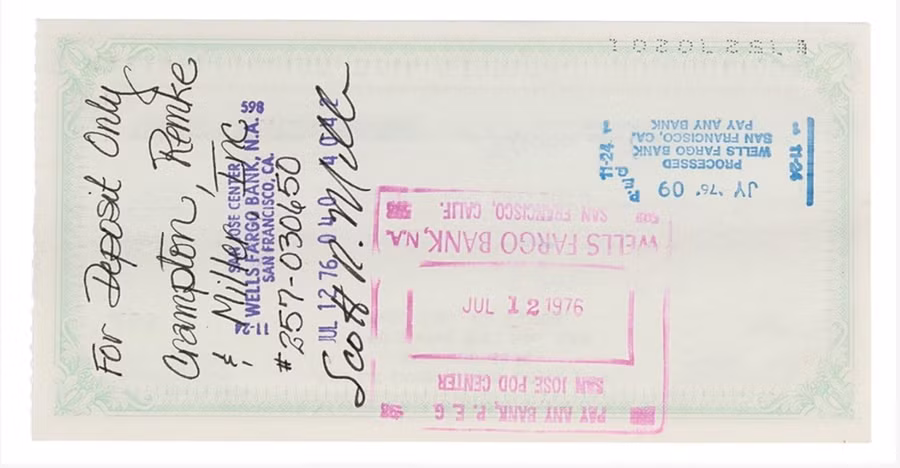 For Deposit Only
Crampton, Remke
& Miller, Inc
#257-030650
Scott N. Miller
598
SAN JOSE CENTER
WELLS FARGO BANK, N.A.
SAN FRANCISCO, CA.
11-24
JUL 12 76 0 4 0 4 0 4 2
PAY ANY BANK, P. E. G
SAN JOSE POD CENTER
JUL 12 1976
WELLS FARGO BANK, N.A.
SAN FRANCISCO, CALIF.
JY '76' 09
PROCESSED
WELLS FARGO BANK
SAN FRANCISCO, CA.
PAY ANY BANK
11-24
11-24
P.N.P